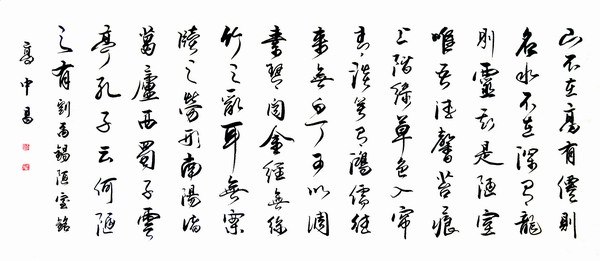 山不在高有僊則
名水不在深有龍
則靈斯是陋室
唯吾德馨苔痕
上階綠草色入帘
青談笑有鴻儒往
來無白丁可以調
素琴閱金經無絲
竹之亂耳無案
牘之勞形南陽諸
葛廬西蜀子雲
亭孔子云何陋
之有劉禹錫陋室銘
高中昌